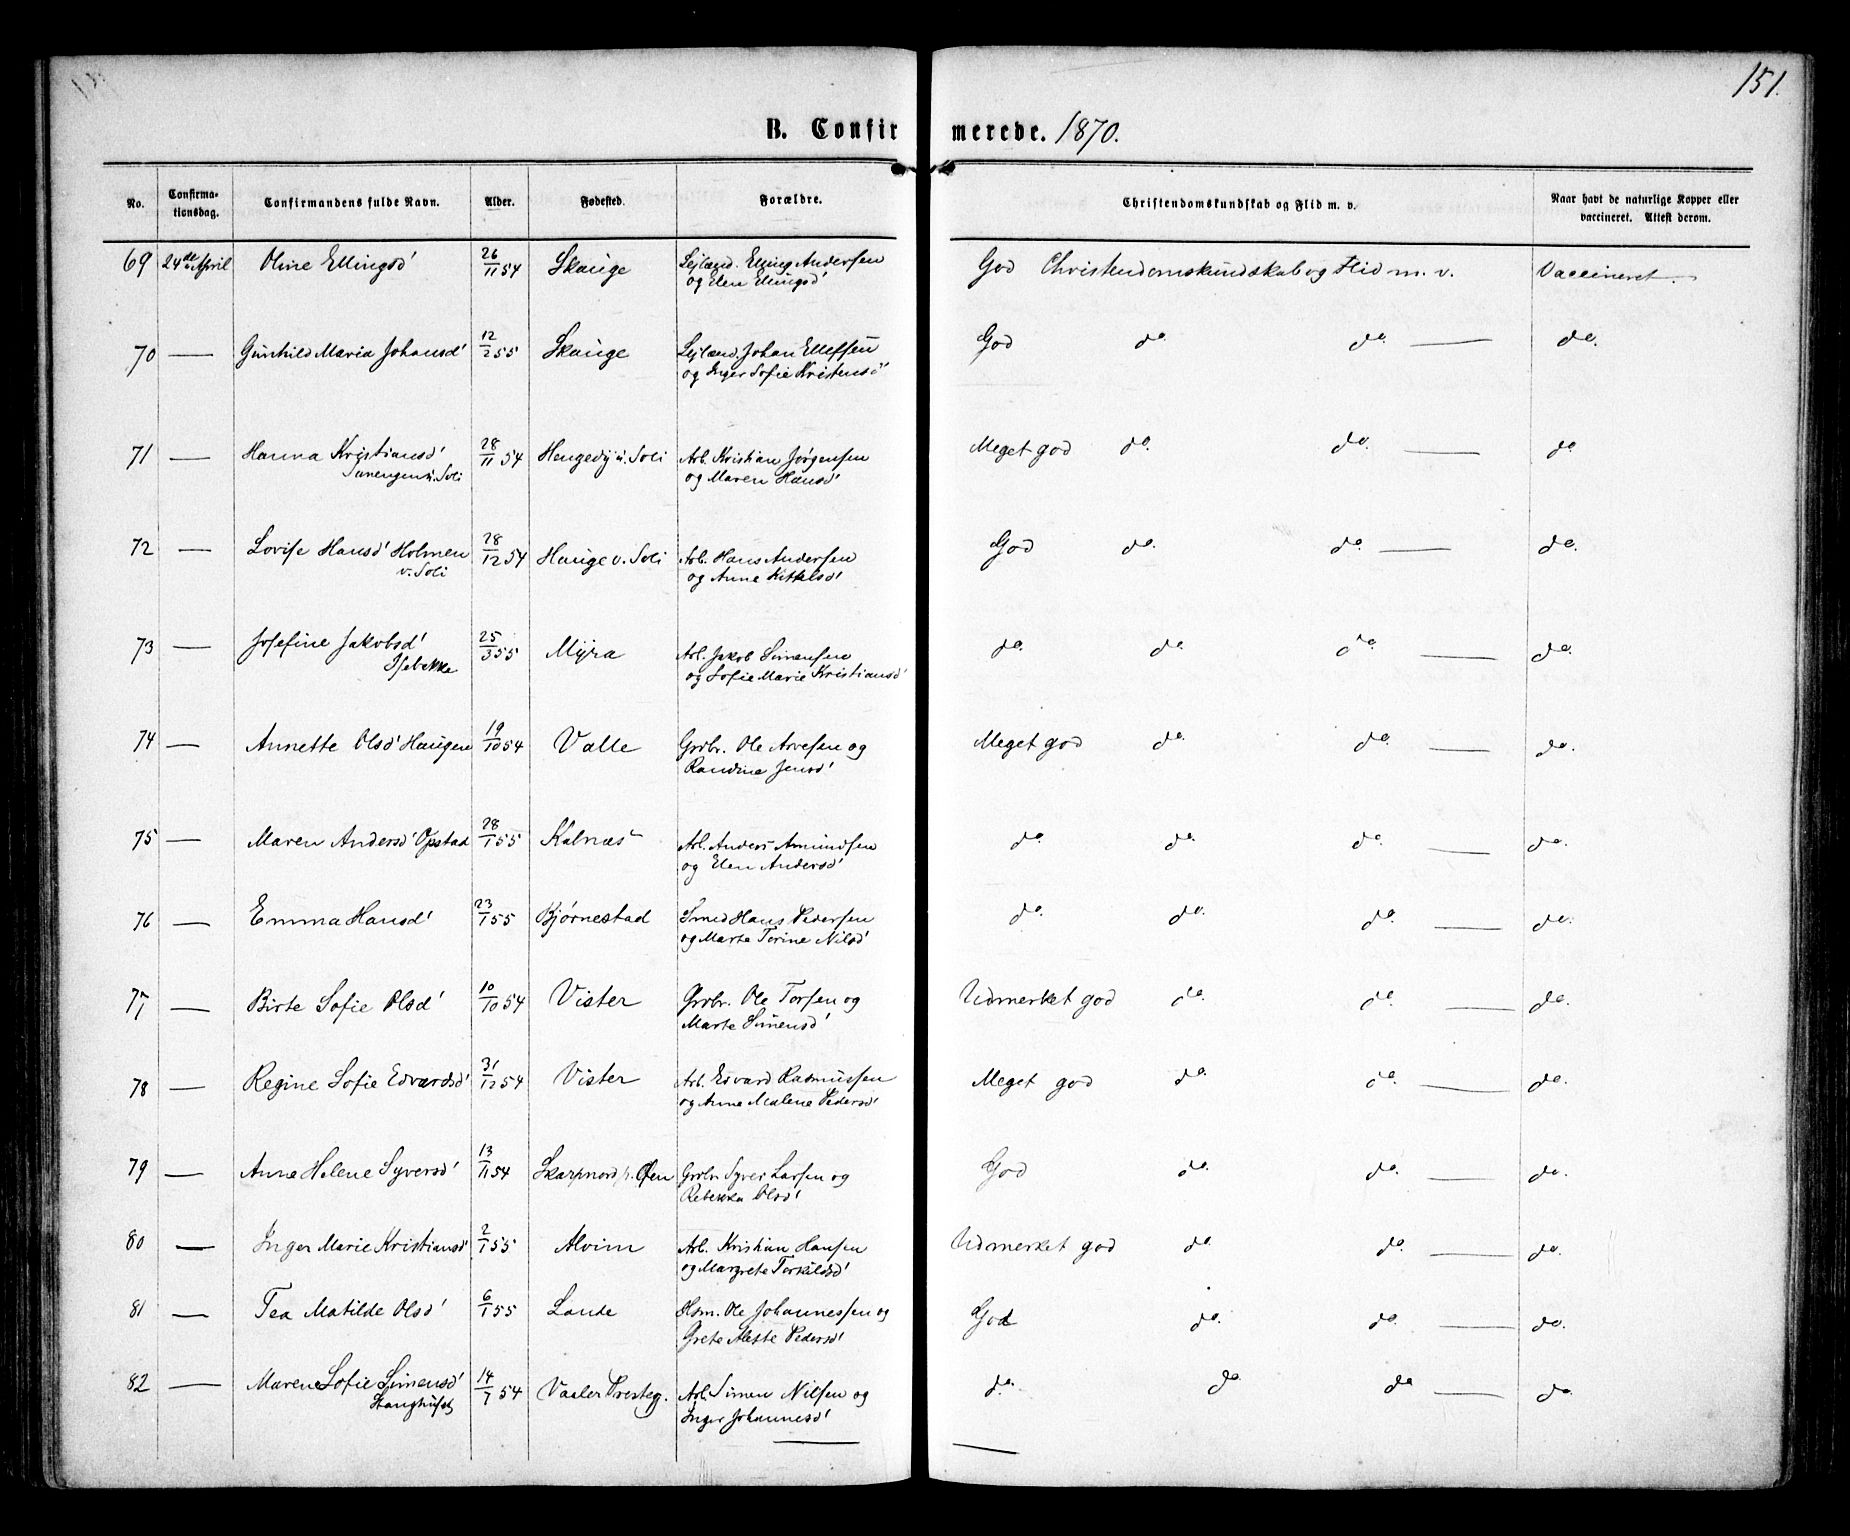 151.
B. Confirmerede. 1870.
No. Confirmationsdag. Confirmandens fulde Navn. Alder. Fødested. Forældre. Christendomskundskab og Flid m. v. Naar havt de naturlige Kopper eller vaccineret. Attest derom.
69 24de April Oline Ellingsd' 26/11 54 Skauge Lejlænd. Elling Andersen God Christendomskundskab og Flid m. v. Vaccineret.
og Elen Ellingsd'
70 — Gunhild Maria Johansd' 12/2 55 Skauge Lejlænd. Johan Ellefsen God do. do. — do.
og Inger Sofie Kristensd'
71 — Hanna Kristiansd' 28/11 54 v. Soli Arb. Kristian Jørgensen Meget god do. do. — do
v. Soli og Maren Hansd'
72 — Lovise Hansd' Holmen 28/12 54 Hauge v. Soli Arb. Hans Andersen God do. do. — do.
v. Soli og Anne Kittelsd'
73 — Josefine Jakobsd' 25/3 55 Myra Arb. Jakob Simensen do. do. do. — do.
Isebakke og Sofie Marie Kristiansd'
74 — Annette Olsd' Haugen 19/10 54 Valle Grdbr. Ole Arvesen og Meget god do. do. — do.
Randine Jensd'
75 — Maren Andersd' Opstad 28/1 55 Kalnæs Arb. Anders Amundsen do. do. do. — do.
og Elen Andersd'
76 — Emma Hansd' 23/1 55 Bjørnestad Smed Hans Pedersen do. do. do. — do.
og Marte Torine Nilsd'
77 — Birte Sofie Olsd' 10/10 54 Vister Grdbr. Ole Torsen og Udmerket god do. do. — do.
Marte Simensd'
78 — Regine Sofie Edvardsd' 31/12 54 Vister Arb. Edvard Rasmussen Meget god do. do. — do.
og Anne Malene Pedersd'
79 — Anne Helene Syversd' 13/11 54 Skarpnord p. Øen Grdbr Syver Larsen og God do. do. — do.
Rebekka Olsd'
80 — Inger Marie Kristiansd' 2/1 55 Alvim Arb. Kristian Hansen Udmerket god do. do. — do.
og Margrete Torkildsd'
81 — Tea Matilde Olsd' 6/1 55 Lande Hsm. Ole Johannessen og God do. do. — do.
Grete Alette Pedersd'
82 — Maren Sofie Simensd' 14/7 54 Vaaler Presteg. Arb. Simen Nilsen og do. do. do — do.
Inger Johannesd'